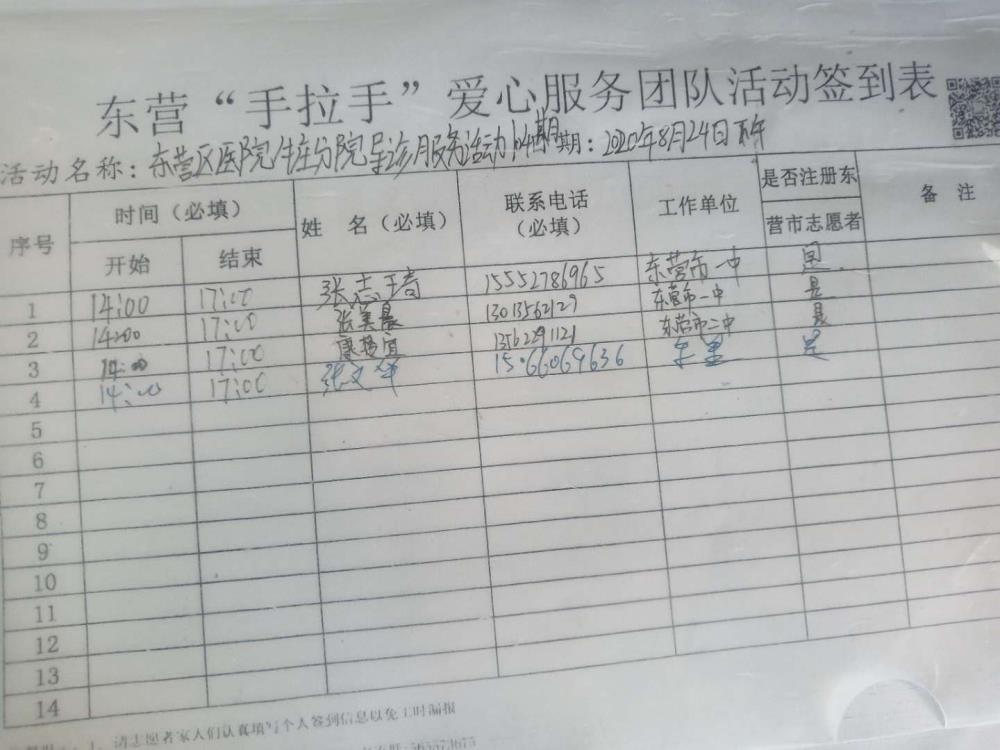 东营“手拉手”爱心服务团队活动签到表
活动名称：东营区医院牛庄分院导诊服务活动104期 日期：2020年8月24日下午
序号 时间（必填） 姓 名（必填） 联系电话（必填） 工作单位 是否注册东营市志愿者 备 注
开始 结束
1 14:00 17:00 张志琦 15552786965 东营市一中 是
2 14:00 17:00 张昊晨 13013562129 东营市一中 是
3 14:00 17:00 康 宜 13562291121 东营市二中 是
4 14:00 17:00 张文华 15066069636 是
5
6
7
8
9
10
11
12
13
14
请志愿者家人们认真填写个人签到信息以免工时漏报